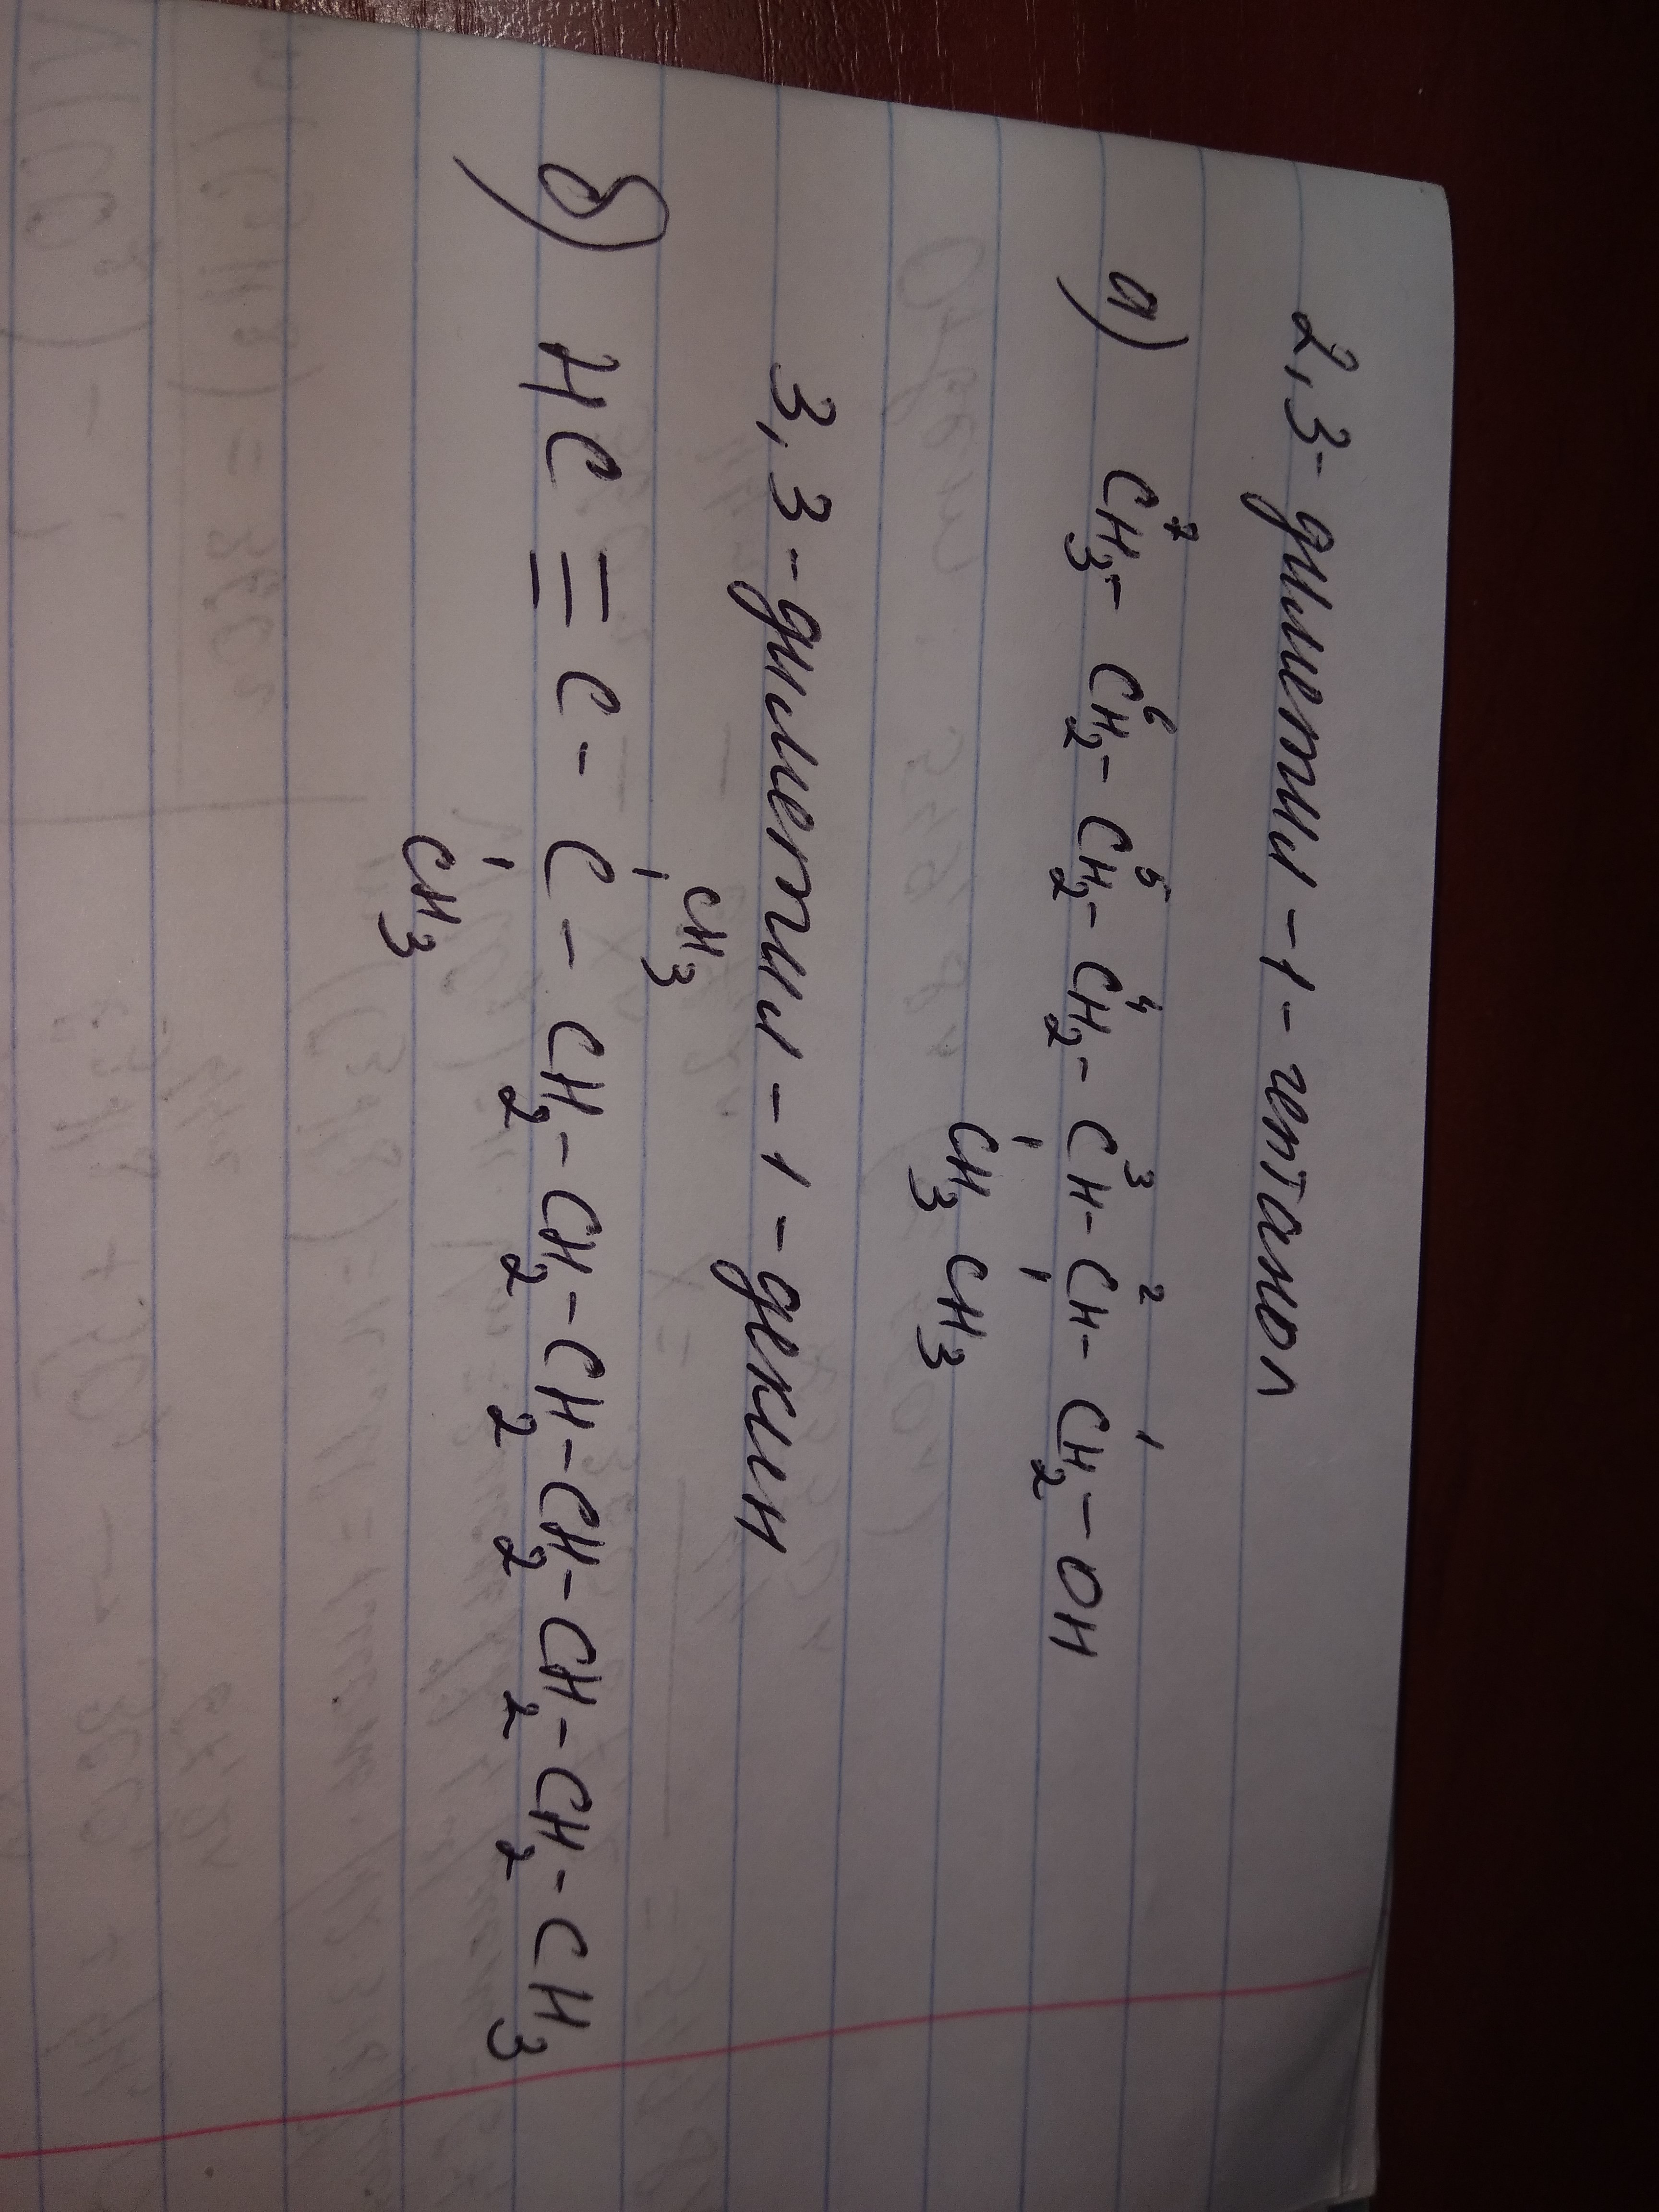 2,3-диметил-1-гептанол
7 6 5 4 3 2 1
а) CH3-CH2-CH2-CH2-CH-CH-CH2-OH
CH3 CH3
3,3-диметил-1-декин
CH3
б) HC≡C-C-CH2-CH2-CH2-CH2-CH2-CH2-CH3
CH3